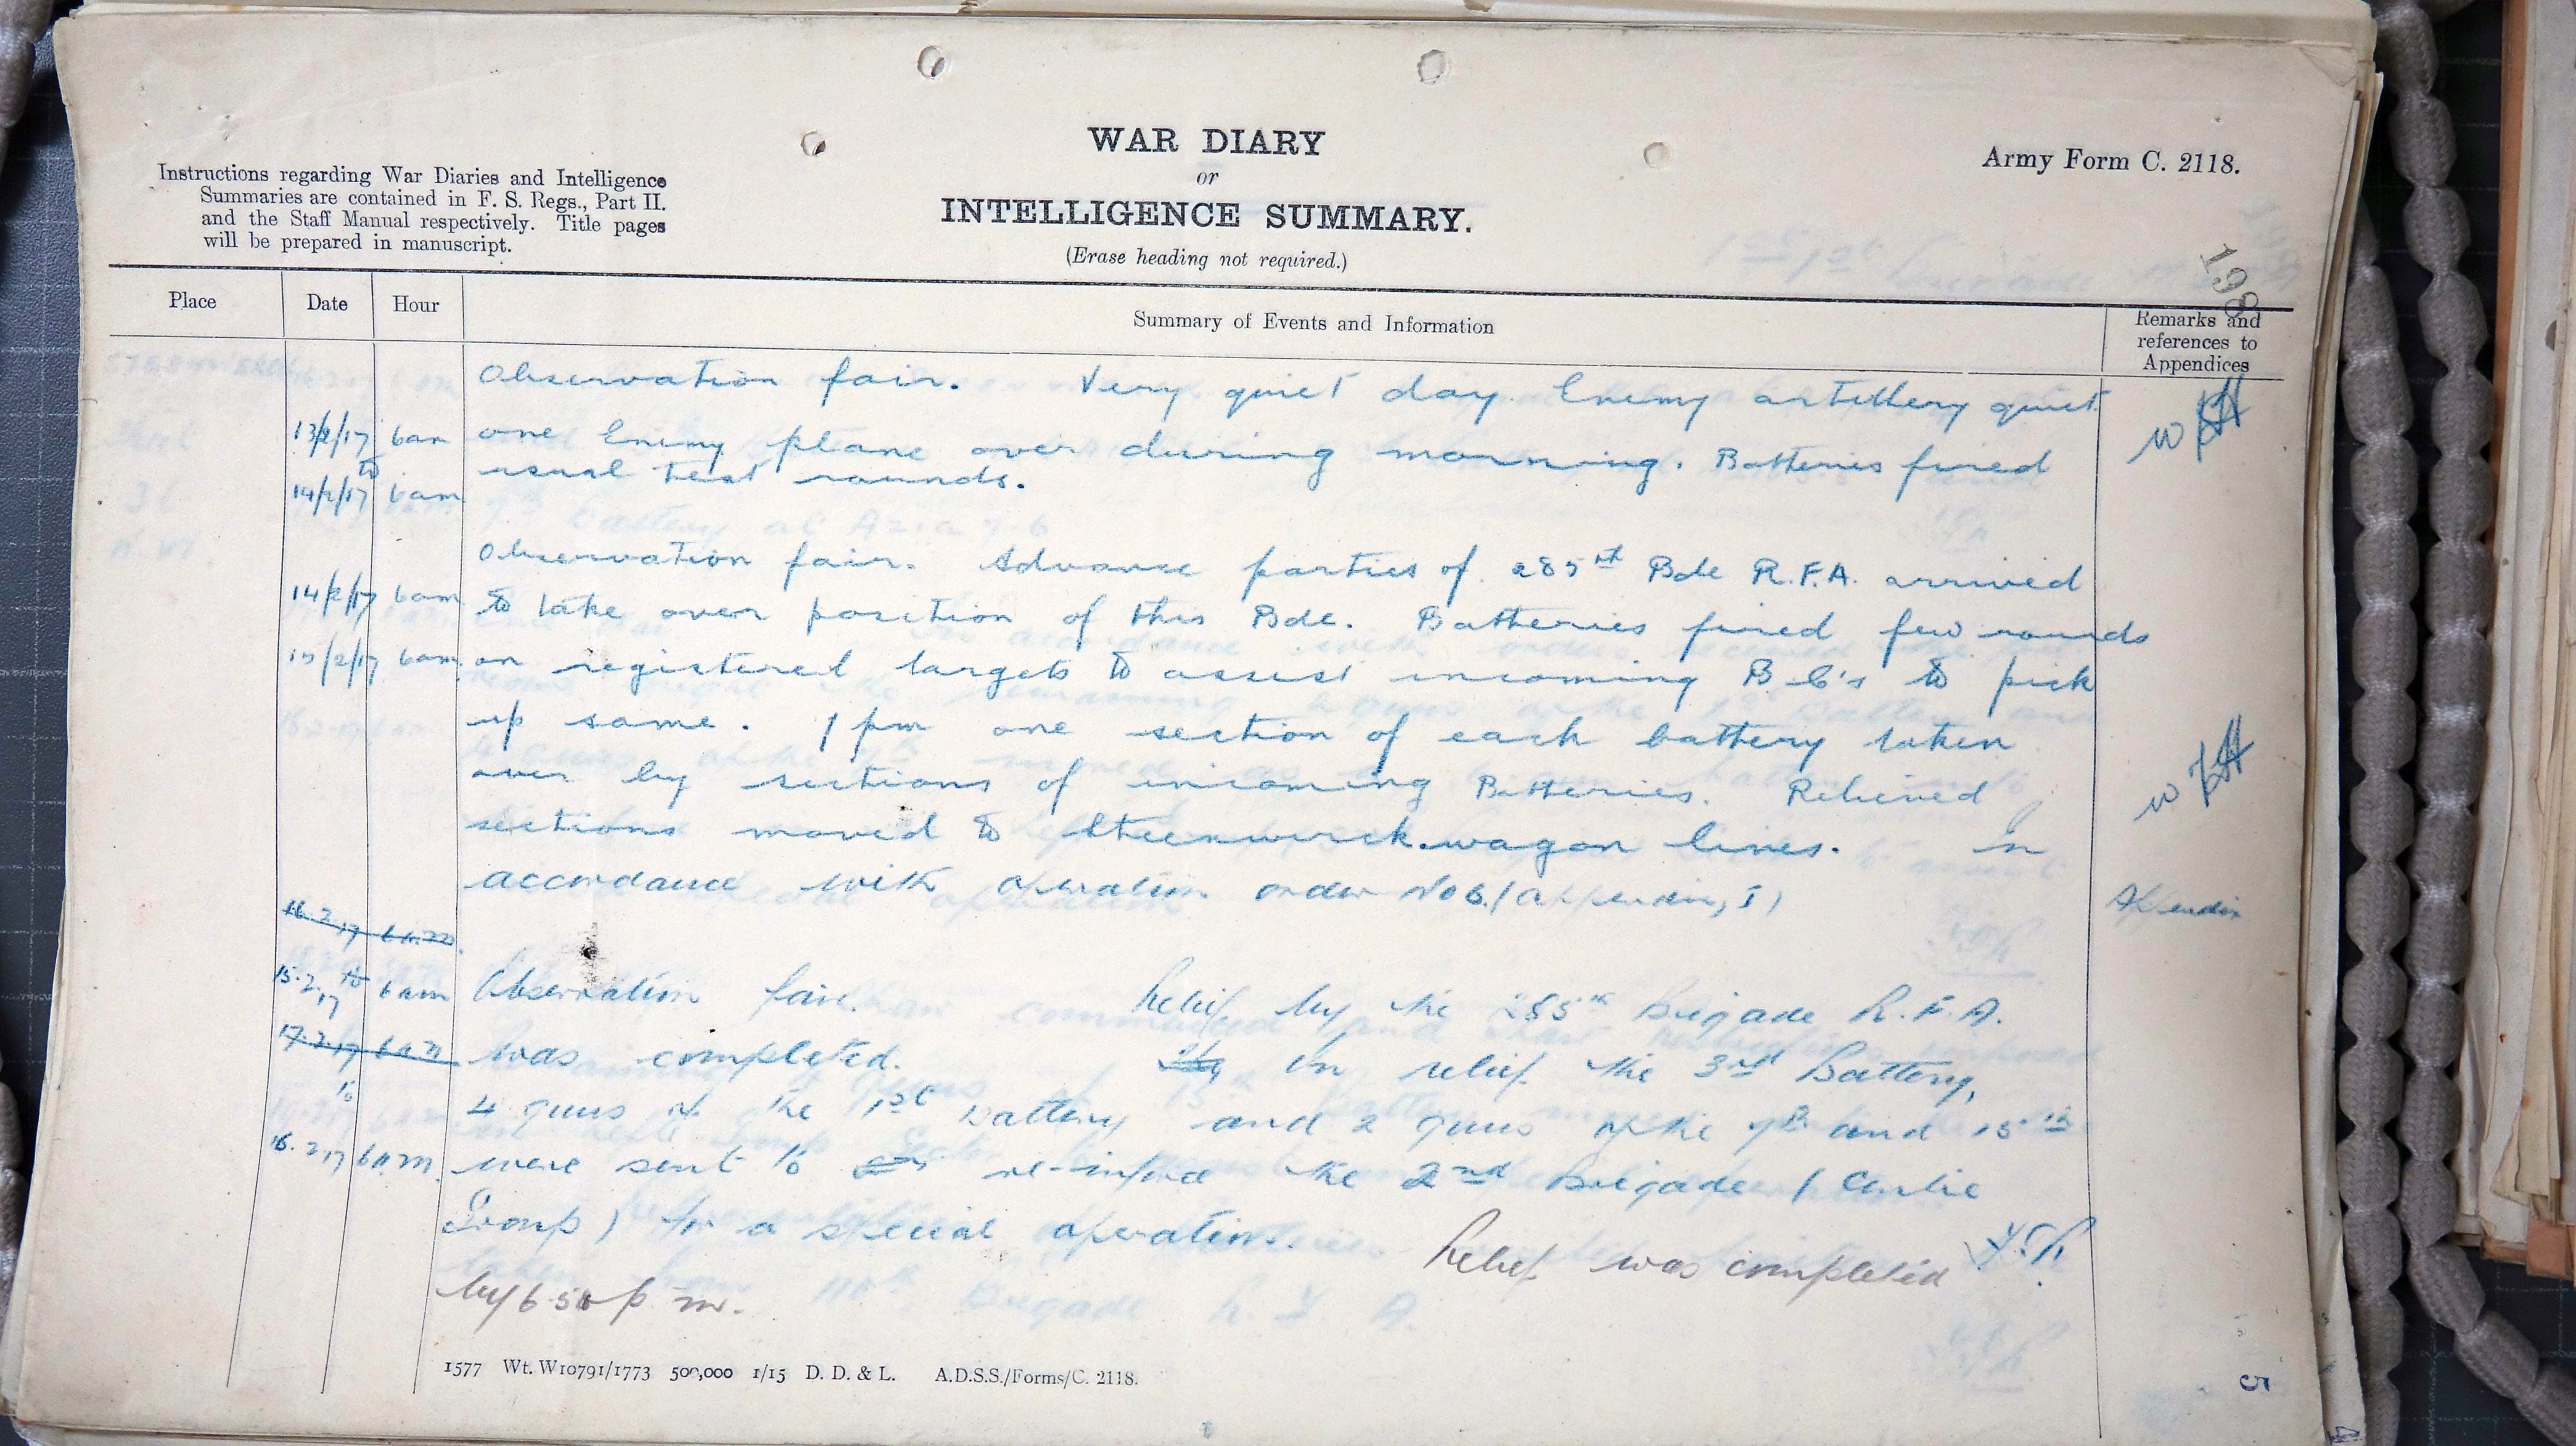 WAR DIARY
or
INTELLIGENCE SUMMARY.
(Erase heading not required.)
Army Form C. 2118.
Instructions regarding War Diaries and Intelligence
Summaries are contained in F. S. Regs., Part II.
and the Staff Manual respectively. Title pages
will be prepared in manuscript.
198
Place Date Hour Summary of Events and Information Remarks and references to Appendices
Observation fair. Very quiet day. Enemy artillery quiet
13/2/17 6am one Enemy plane over during morning. Batteries fired
to
14/2/17 6am usual test rounds.
Observation fair. Advance parties of 285th Bde R.F.A. arrived
14/2/17 6am to take over position of this Bde. Batteries fired few rounds
15/2/17 6am on registered targets to assist incoming B.C's to pick
up same. 1 pm one section of each battery taken
over by sections of incoming Batteries. Relieved
sections moved to Steenwerck wagon lines. In
accordance with operation order No 6. (Appendix, I) Appendix
16.2.17 6 a.m.
15.2.17 to 6am Observation fair. Relief by the 285th Brigade R.F.A.
17.2.17 6am was completed. In relief the 3rd Battery,
to
4 guns of the 1st Battery and 2 guns of the 7th and 15th
16.2.17 6a.m. were sent to re-inforce the 2nd Brigade (Centre
Group) for a special operation.
Relief was completed
by 6 50 p m.
1577 Wt. W10791/1773 500,000 1/15 D. D. & L. A.D.S.S./Forms/C. 2118.
5